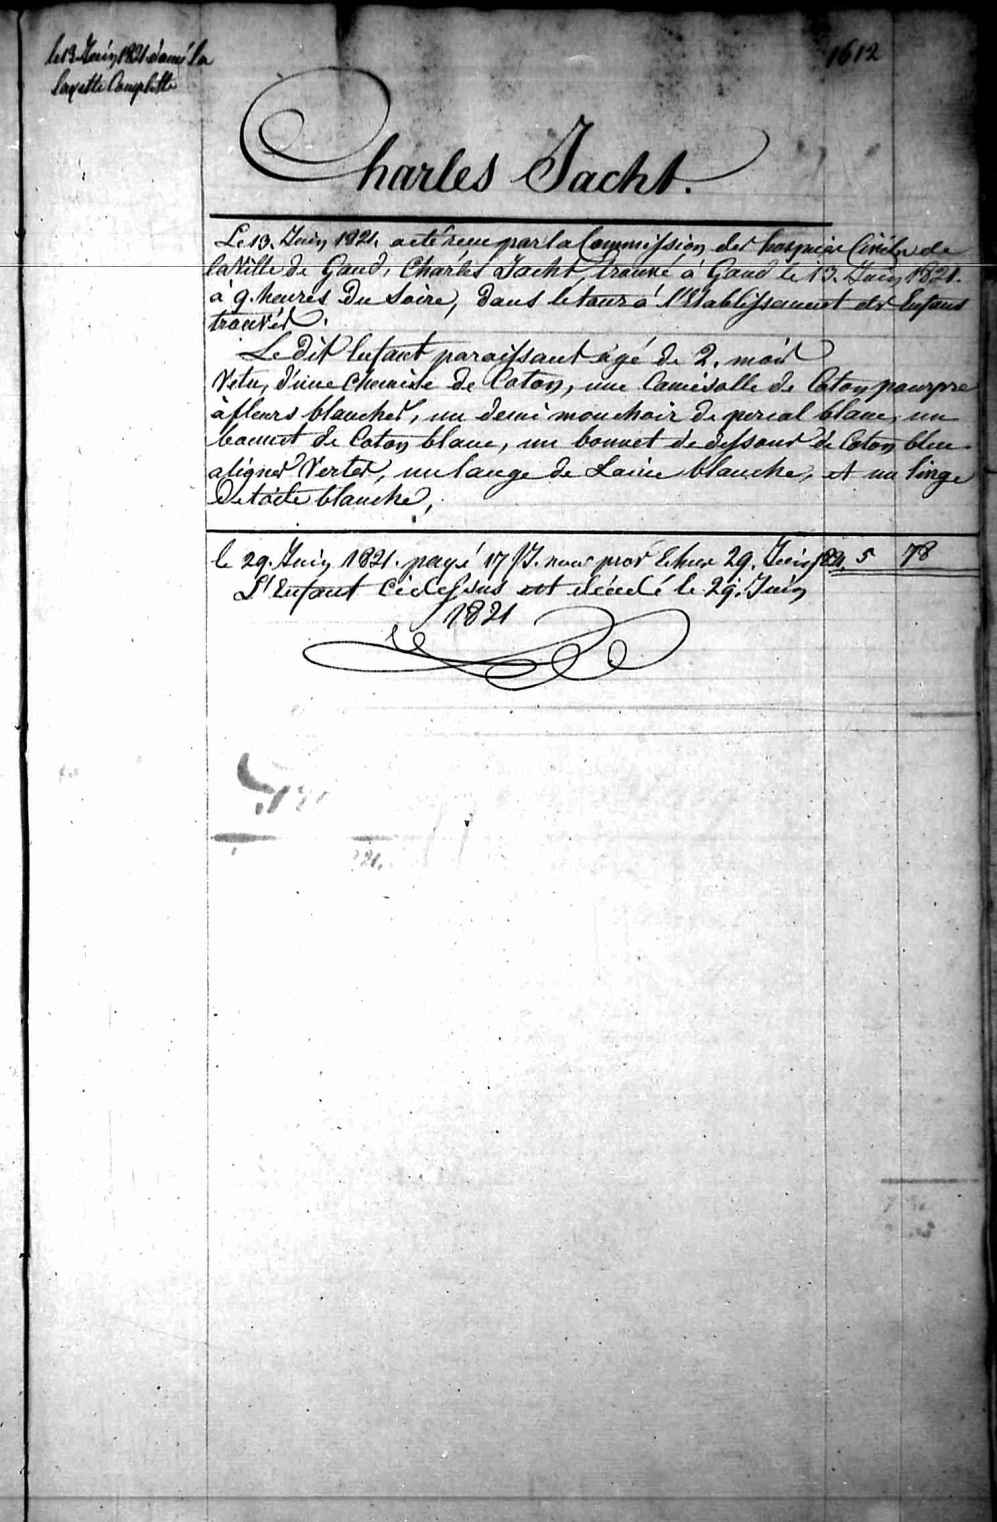 le 13 Juin 1821 donné la
layette Complette
1612
Charles Jacht.
Le 13. Juin 1821. a été reçu par la Commission des hospices Civils de
la Ville de Gand, Charles Jacht, trouvé à Gand le 13. Juin 1821.
à 9. heures Du Soire, dans le tour à l'Etablissement des Enfans
trouvés.
Le dit Enfant paraissant agé de 2. mois
Vetu, d'une chemise de Coton, une Camisolle de Coton pourpre
à fleurs blanches, un demi mouchoir de percal blanc, un
bonnet de Coton blanc, un bonnet de dessous de Coton bleu
a lignes Vertes, un lange de Laine blanche, et un linge
De toile blanche,
le 29. Juin 1821. payé 17 J. 29. Juin 1821. 5 78
L'Enfant Cidessus est décédé le 29. Juin
1821